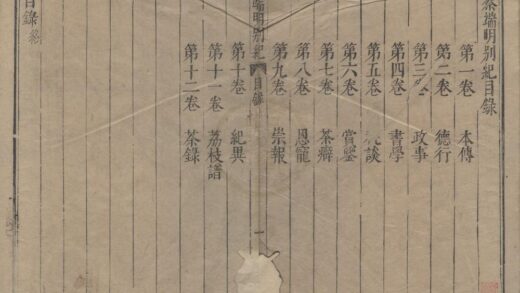 蔡端明别紀目錄
第一卷 本傳
第二卷 德行
第三卷 政事
第四卷 書學
第五卷 談
第六卷 賞鑒
第七卷 茶癖
第八卷 恩寵
第九卷 崇報
端明别紀 目錄 一
第十卷 紀異
第十一卷 荔枝譜
第十二卷 茶錄
目錄終